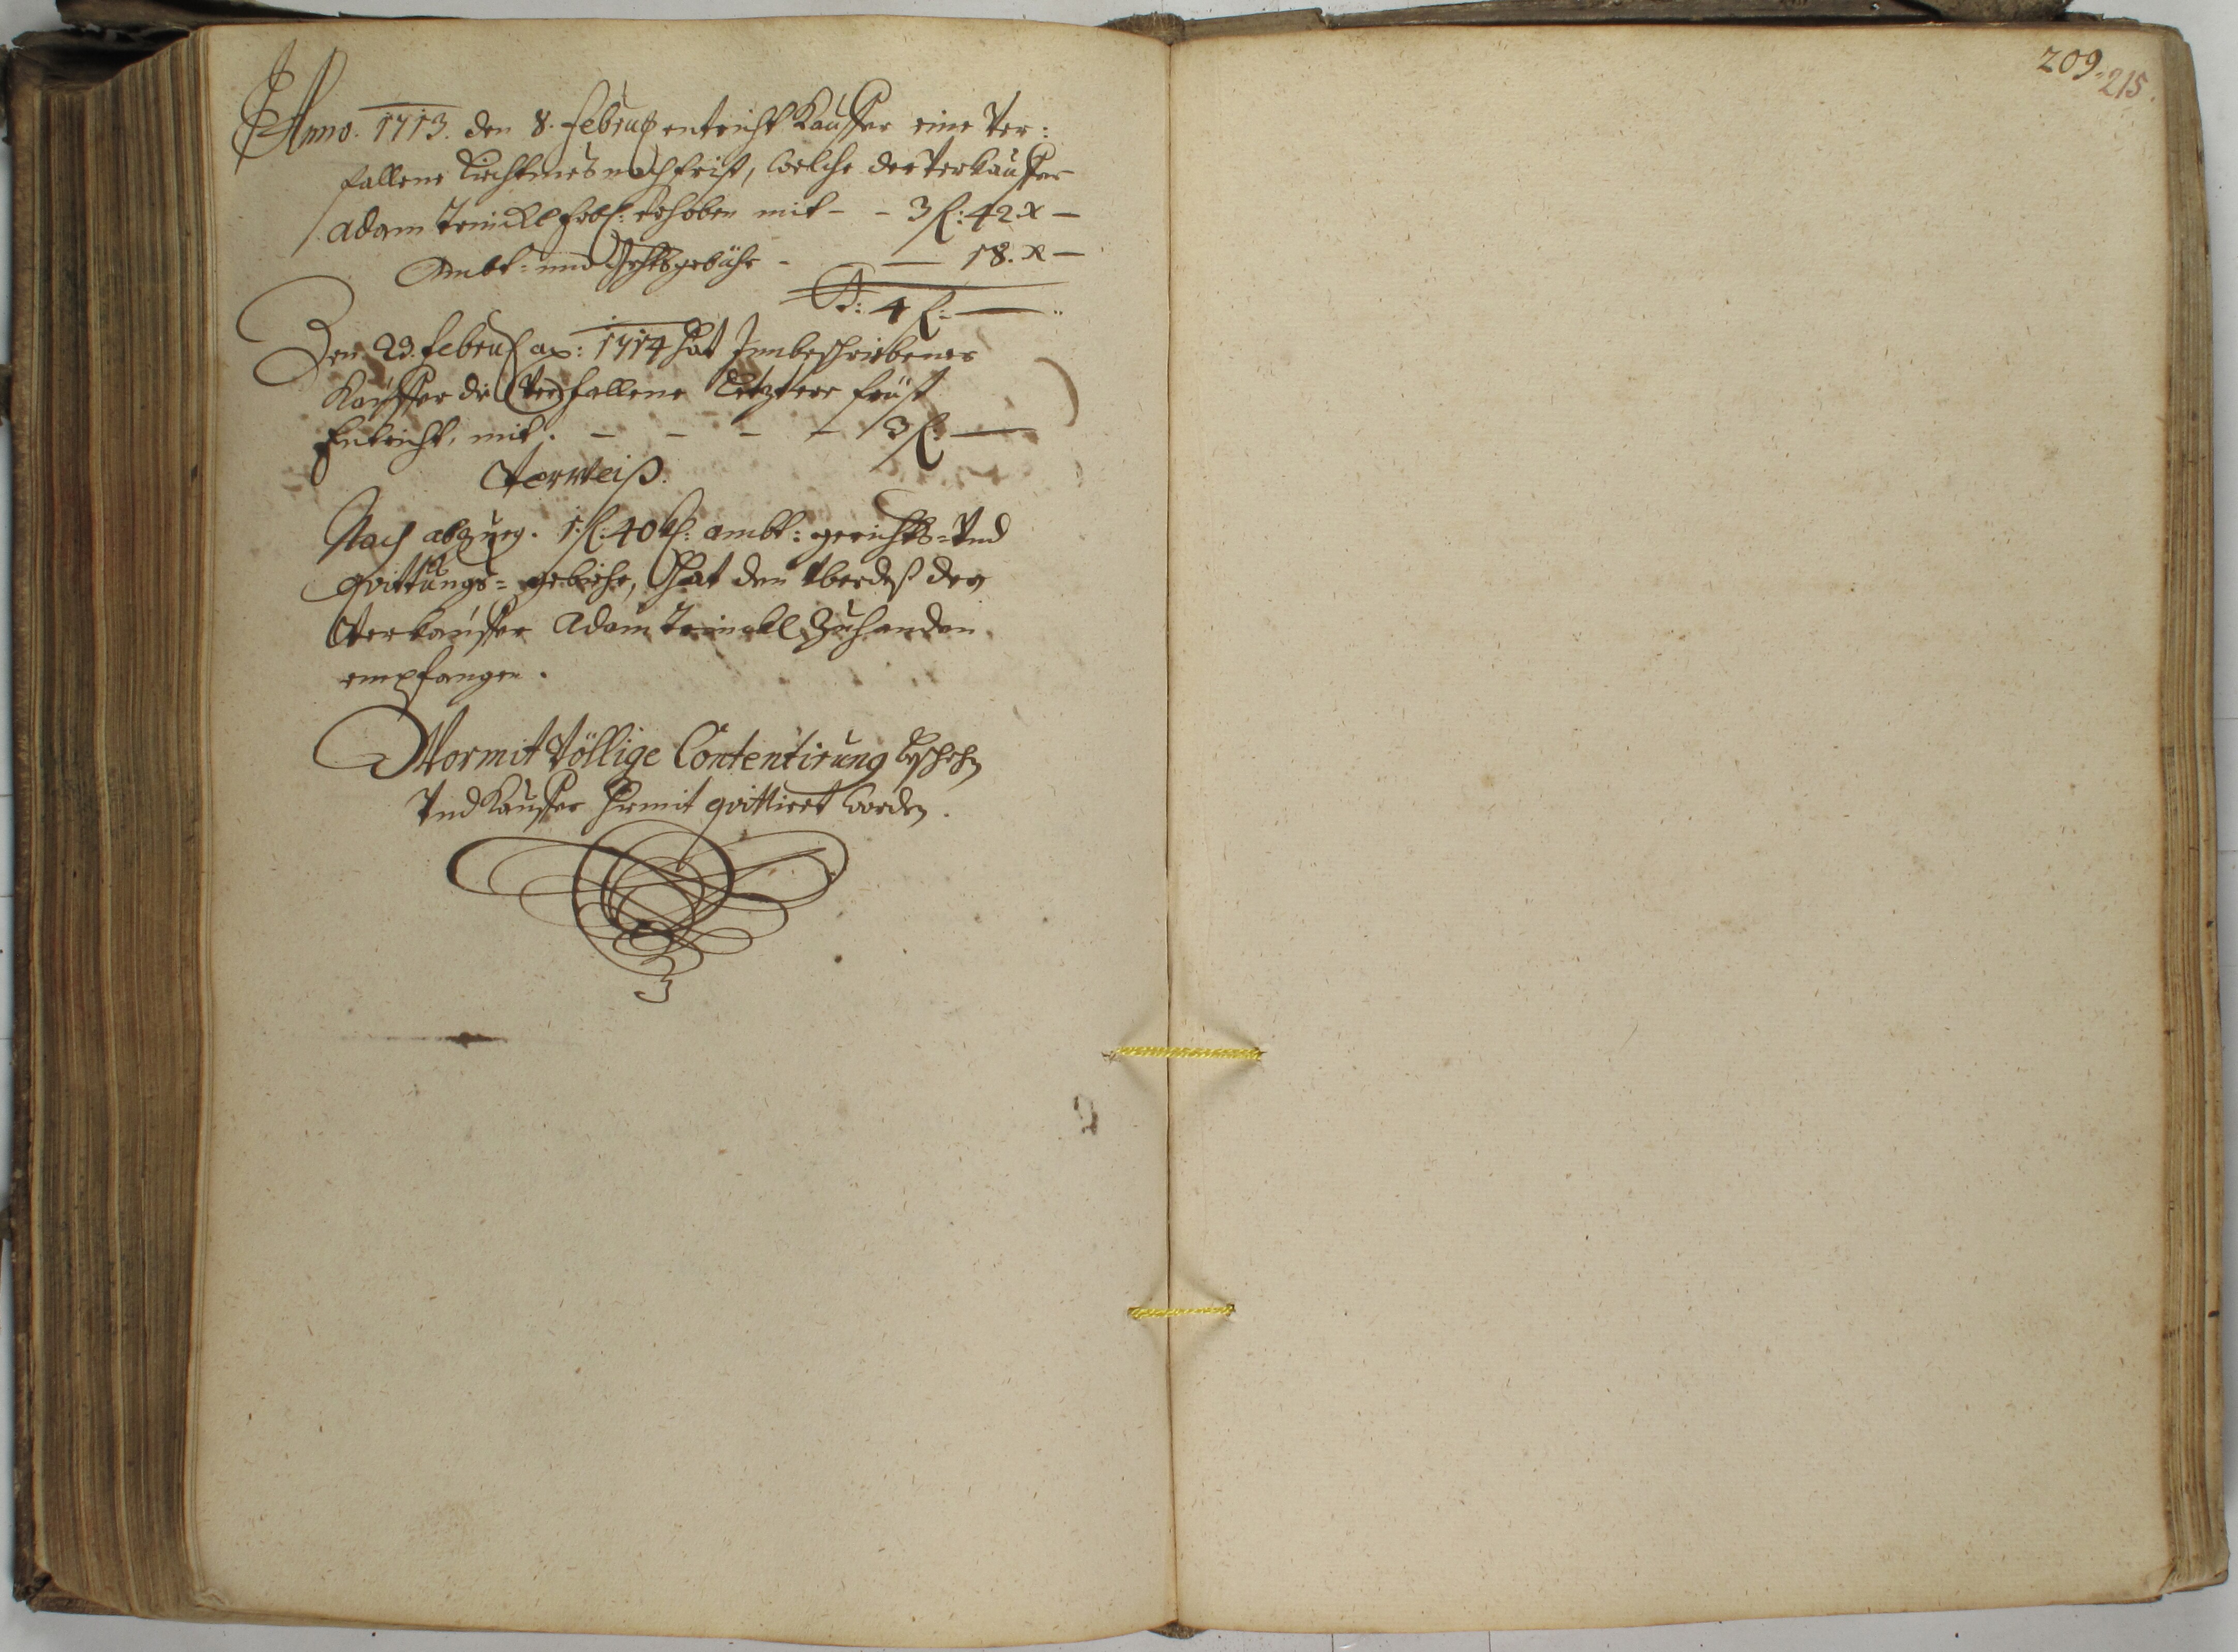 Anno. 1713. den 8. Febru: entricht Kauffer eine ver:
fallene Liechtmes nachfrist, welche der Verkauffer
Adam Trinckl selbst erhoben mit - - 3 f: 42 x —
Ambt- und Grichtsgebühr - — 18. x —
S: 4 f: —
Den 23. Febru: ao: 1714 hat Innbeschriebener
Kauffer die verfallene letztere Früst
Entricht, mit. - - - - 3 f: —
Verweiß.
Nach abzug. 1 f: 40 kr: ambt: gerichts- Vnd
quittungs- gebiehr, hat den Vberrest der
Verkauffer Adam Trinckl Zuhanden
empfangen.
Wormit Völlige Contentirung beschehen
Vnd Kauffer hiemit quittiert worden.
209.
215.